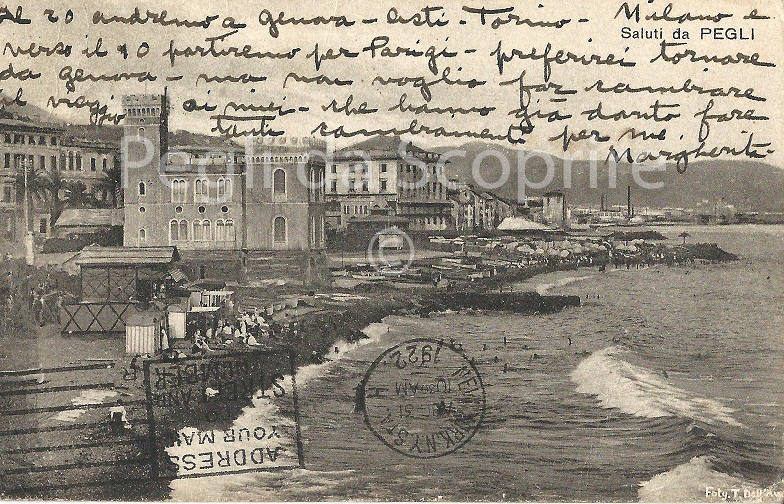 Al 20 andremo a genova - Asti - Torino - Milano e
Saluti da PEGLI
verso il 10 partiremo per Parigi - preferirei tornare
da genova - ma non voglio far cambiare
al viaggio ai miei - che hanno già dovuto fare
tanti cambiamenti per me.
Margherita
Pegli da Scoprire
©
NEW YORK, N.Y. STA. H
31
10 AM
1922
ADDRESS
YOUR MAIL
STREET AND
NUMBER
Foty. T. Dell'